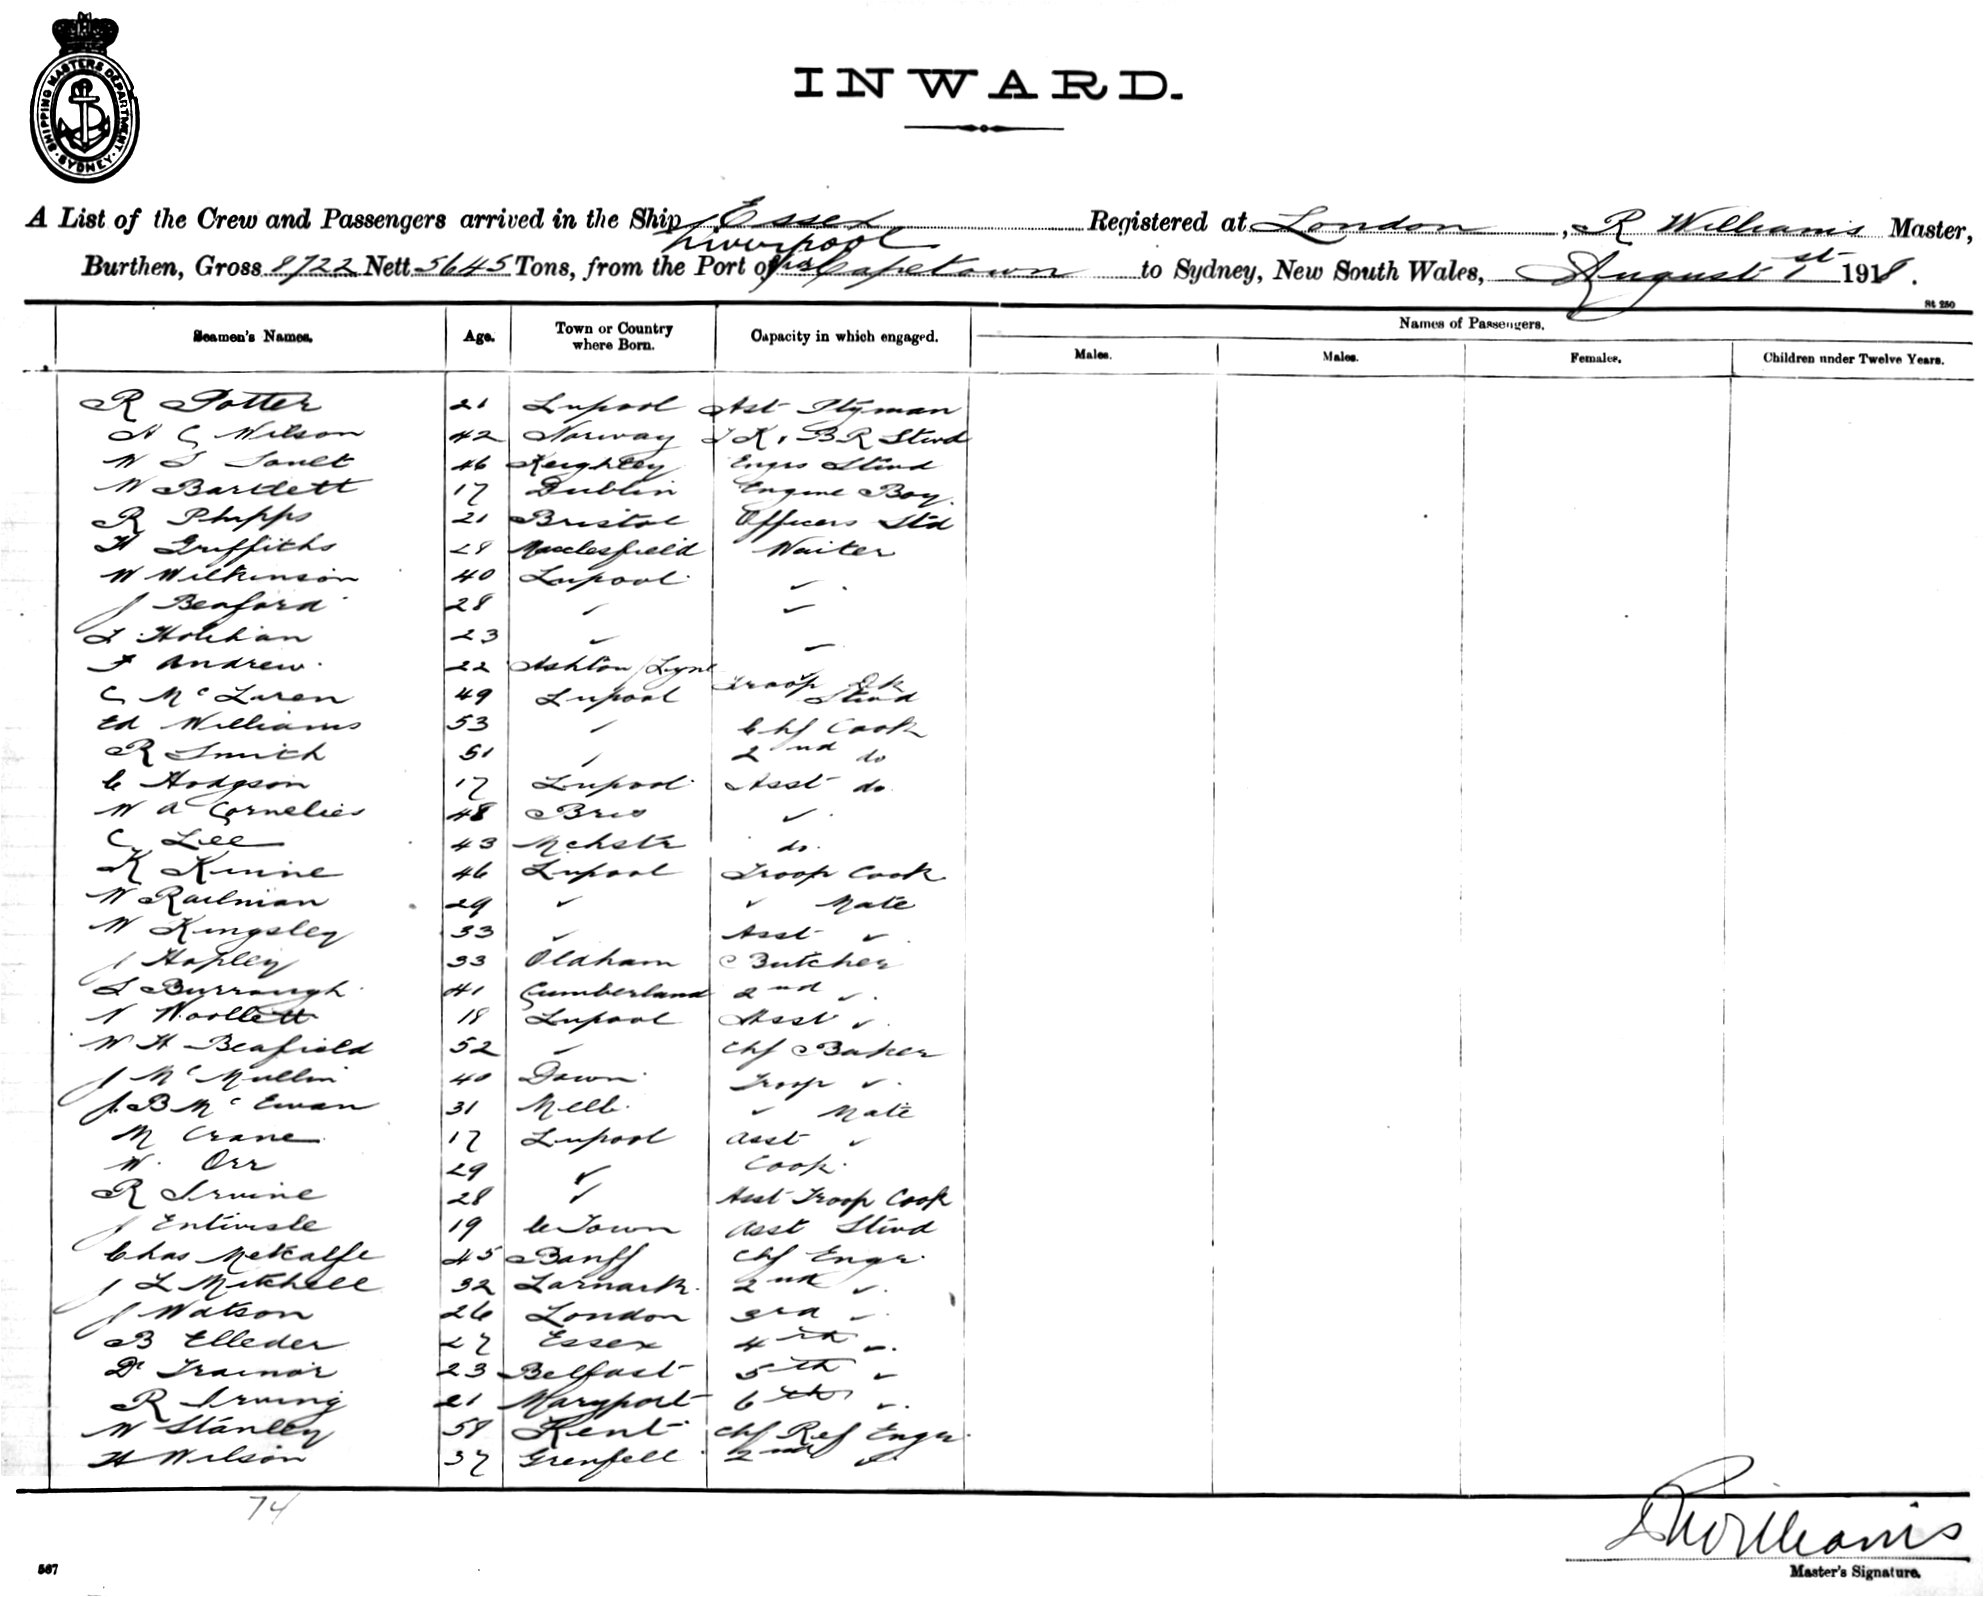 SHIPPING MASTERS DEPARTMENT. SYDNEY
INWARD.
A List of the Crew and Passengers arrived in the Ship Essex Registered at London, R Williams Master,
Liverpool
Burthen, Gross 8722 Nett 5645 Tons, from the Port of via Capetown to Sydney, New South Wales, August 1st 1918.
St 250
Seamen's Names. Age. Town or Country where Born. Capacity in which engaged. Names of Passengers.
Males. Males. Females. Children under Twelve Years.
R Potter 21 Lupool Ast Ptyman
A C Wilson 42 Norway K. BR Stwd
W 46 Keighley Engrs Stwd
W Bartlett 17 Dublin Engine Boy.
R Phipps 21 Bristol Officers Std
H Griffiths 28 Macclesfield Waiter
W Wilkinson 40 Lupool ✓
J Beaford 28 ✓ ✓
L Holihan 23 ✓ ✓
F Andrew 22 Ashton / Lyne ✓
C McLaren 49 Lupool Troop Dk Stwd
Ed Williams 53 ✓ Chf Cook
R Smith 51 ✓ 2nd do
C Hodgson 17 Lupool Asst do
W A Cornelies 48 Bris ✓
C Lee 43 Mchstr do.
K Kinne 46 Lupool Troop Cook
W Railman 29 ✓ ✓ Mate
W Kingsley 33 ✓ Asst ✓
J Hopley 33 Oldham Butcher
L Burrough 41 Cumberland 2nd ✓
N Woollett 18 Lupool Asst ✓
W H Beafield 52 ✓ Chf Baker
J McMullin 40 Down Troop ✓
J. B McEwan 31 Melb. ✓ Mate
M Crane 17 Lupool Asst ✓
W. Orr 29 ✓ Cook.
R Irvine 28 ✓ Asst Troop Cook
J Entwisle 19 C Town Asst Stwd
Chas Metcalfe 45 Banff Chf Engr.
J L Mitchell 32 Larnark. 2nd ✓
J Watson 26 London 3rd ✓
B Elleder 27 Essex 4th ✓
D Trainor 23 Belfast 5th ✓
R Irving 21 Maryport 6th ✓
W Stanley 58 Kent Chf Ref Engr.
H Wilson 37 Grenfell 2nd ✓
74
R Williams
Master's Signature.
567